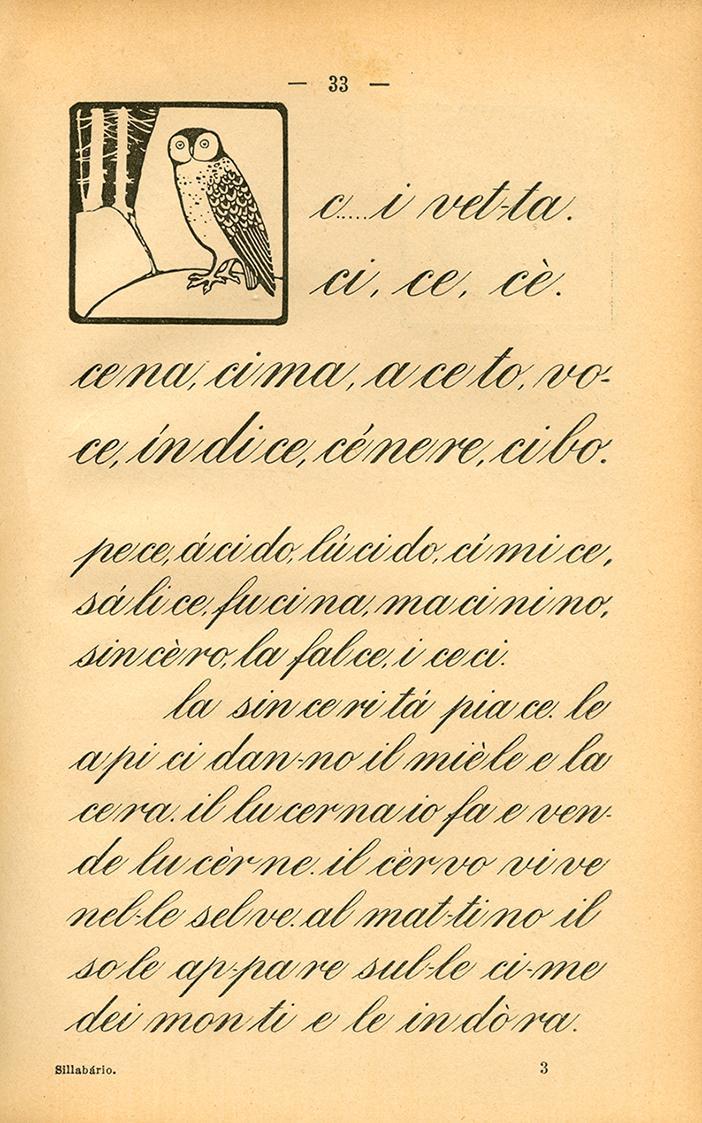 — 33 —
c.....i vet-ta.
ci, ce, cè.
cena, cima, aceto, vo-
ce, índice, cénere, cibo.
pece, ácido, lúcido, címice,
sálice, fucina, macinino,
sincèro, la falce, i ceci.
la sinceritá piace. le
api ci dan-no il mièle e la
cera. il lucernaio fa e ven-
de lucèrne. il cèrvo vive
nel-le selve. al mat-tino il
sole ap-pare sul-le ci-me
dei monti e le indòra.
Sillabário. 3